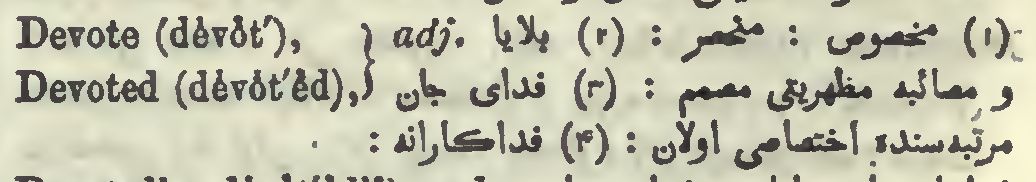 Devote (dėvōt′), } adj. (۱) مخصوص : منحصر : (۲) بلایا
Devoted (dėvōt′ėd), } و مصائبه مظهریتی مصمم : (۳) فدای جان
مرتبه‌سنده اختصاصی اولان : (۴) فداكارانه :